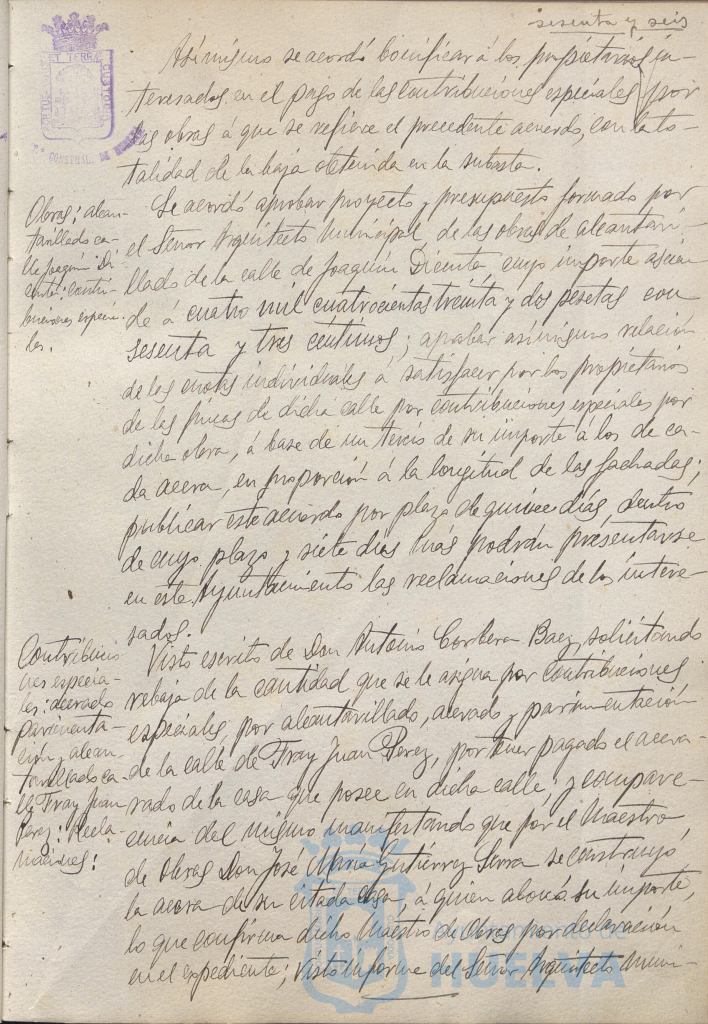 sesenta y seis
Asimismo se acordó bonificar á los propietarios in-
teresados, en el pago de las contribuciones especiales por
las obras á que se refiere el precedente acuerdo, con la to-
talidad de la baja obtenida en la subasta.
Obras: alcan-
tarillado ca-
lle Joaquín Di-
centa: contri-
buciones especia-
les.
Se acordó aprobar proyecto y presupuesto formado por
el Señor Arquitecto Municipal de las obras de alcantari-
llado de la calle de Joaquín Dicenta, cuyo importe ascien
de á cuatro mil cuatrocientas treinta y dos pesetas con
sesenta y tres céntimos; aprobar asimismo relación
de las cuotas individuales á satisfacer por los propietarios
de las fincas de dicha calle por contribuciones especiales por
dicha obra, á base de un tercio de su importe á los de ca-
da acera, en proporción á la longitud de las fachadas;
publicar este acuerdo por plazo de quince días, dentro
de cuyo plazo y siete días más podrán presentarse
en este Ayuntamiento las reclamaciones de los intere
sados.
Contribucio
nes especia-
les: acerado
pavimenta-
ción y alcan-
tarillado ca-
lle Fray Juan
Perez: Recla-
maciones:
Visto escrito de Don Antonio Corbera Baez, solicitando
rebaja de la cantidad que se le asigna por contribuciones
especiales, por alcantarillado, acerado y pavimentación
de la calle de Fray Juan Perez, por tener pagado el acera-
rado de la casa que posee en dicha calle; y compare-
cencia del mismo manifestando que por el Maestro
de Obras Don José María Gutiérrez Serra se construyó
la acera de su citada casa, á quien abonó su importe,
lo que confirma dicho Maestro de Obras por declaración
en el expediente; Visto informe del Señor Arquitecto Muni-
HUELVA